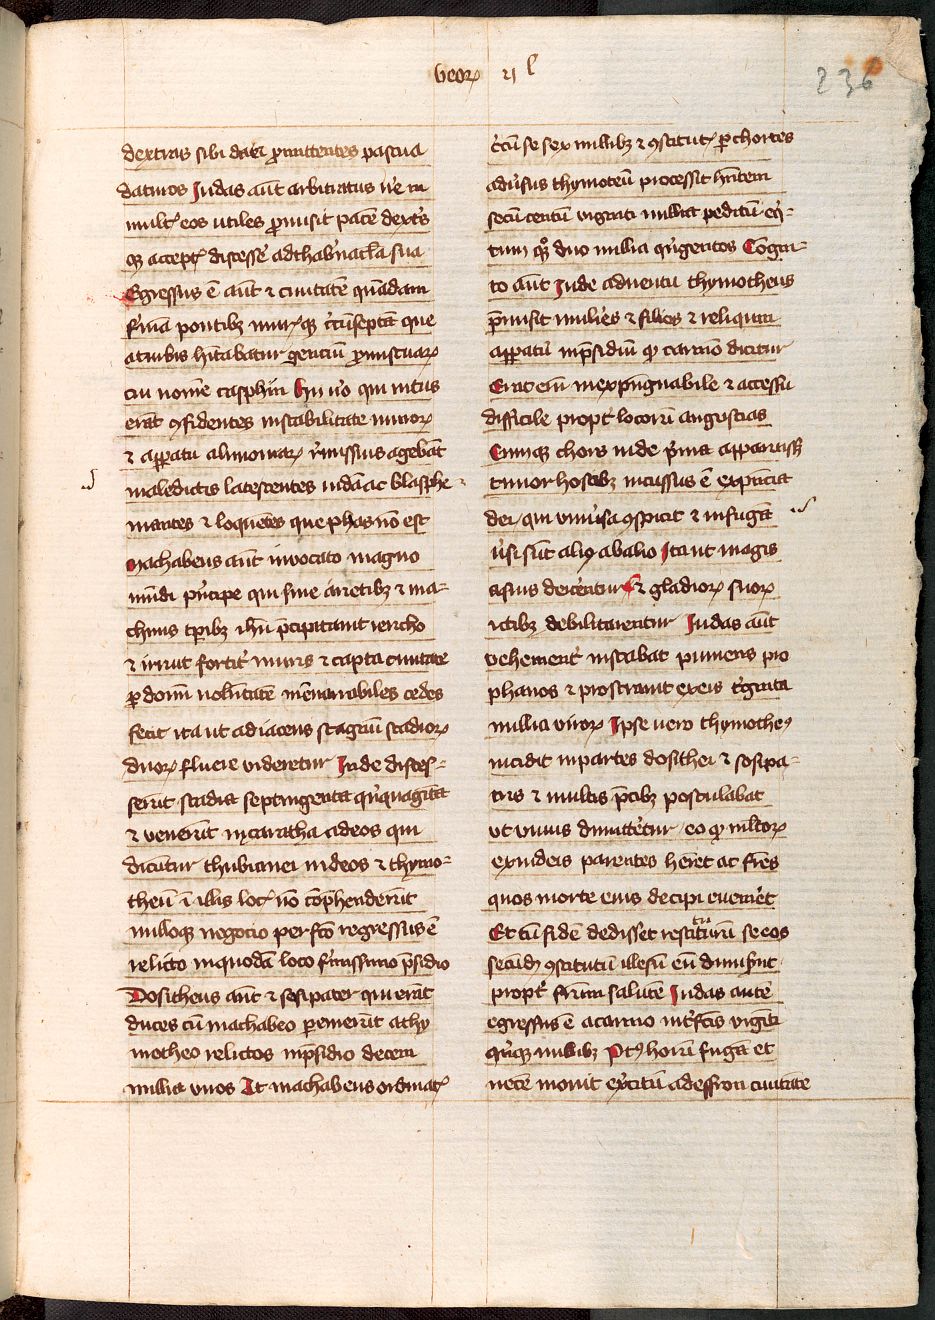 beorͯ ij l
236
dextras sibi dari ꝓmittentes pascua
daturos Judas aūt arbitratus ūe in
mult͛ eos utiles ꝓmisit pacē dextr̉s
qꝫ accept͛ discesse᷑ ad thabn̉acl̄a sua
Egressus ē aūt ⁊ ciuitatē quādam
firmā pontibꝫ murꝭqꝫ cͥcūseptā que
a turbis hītabatur genciū ꝓmiscuaꝝ
cui nomē casphin hii ūo qui intus
erāt ꝯfidentes in stabilitate muroꝝ
⁊ apꝑatu alimoniaꝝ r̉missius agebāt
maledictis lacescentes iudā ac blasphe
mantes ⁊ loquētes que phas nō est
machabeus aūt inuocato magno
mūdi pͥncipe qui sine arietibꝫ ⁊ ma-
chinis tꝑibꝫ ihū p̄cipitauit iericho
⁊ irruit fortit͛ muris ⁊ capta ciuitate
ꝑ domī uolūtatē īnenarrabiles cedes
fecit ita ut adiacens stagnū stadioꝝ
duoꝝ fluere videretur Inde disces-
serūt stadia septingenta qͥnquagīta
⁊ venerūt in caratha ad eos qui
dicūtur thubianei iudeos ⁊ thymo-
theū ī illis loc͛ nō cōp̄henderūt
nulloqꝫ negocio perfc̄o regressus ē
relicto in quodā loco firmissimo p̄sidio
Dositheus aūt ⁊ sosipater qui erāt
duces cū machabeo ꝑemerūt a thy
motheo relictos in p̄sidio decem
milia viros At machabeus ordinat͛
cͥcū se sex milibꝫ ⁊ ꝯstitut͛ ꝑ chortes
aduͥsus thymoteū processit hn̄tem
secū centū viginti millia peditū eq̉-
tum qꝫ duo milia qͥngentos Cōgni-
to aūt Jude aduentu thymotheus
p̄misit mulie᷑s ⁊ filios ⁊ reliquū
apꝑatū in p̄sidiū qͦ carnio dicitur
Erat eni inexpūgnabile ⁊ accessu
difficile propt͛ locorū angustias
Cumqꝫ chors iude pͥma apparuissꝫ
timor hostibꝫ incussus ē ex p̄ncia
dei qui vniuͥsa ꝯspicit ⁊ in fugā
uͥsi sūt aliꝰ ab alio Ita ut magis
a suis deicerētur Et gladioꝝ suoꝝ
ictibꝫ debilitarentur Judas aūt
vehement͛ instabat puniens pro
phanos ⁊ prostrauit ex eis tͥginta
millia viroꝝ Ipse uero thymotheꝰ
incidit in partes dosithei ⁊ sosipa-
tris ⁊ multis p̄cibꝫ postulabat
vt viuus dimitte᷑tur eo qͦ mltoꝝ
ex iudeis parentes habe᷑t ac fr̄es
quos morte eius decipi eueni᷑et
Et cū fidē dedisset restiturū se eos
tu
secūdū ꝯstitutū illesū eū dimiserūt
propt͛ fr̄um salutē Judas autē
egressus ē a carnio int̉fc̄is viginti
qͥnqꝫ milibꝫ Post horū fugā et
necē mouit ex̉citū ad effron ciuitate